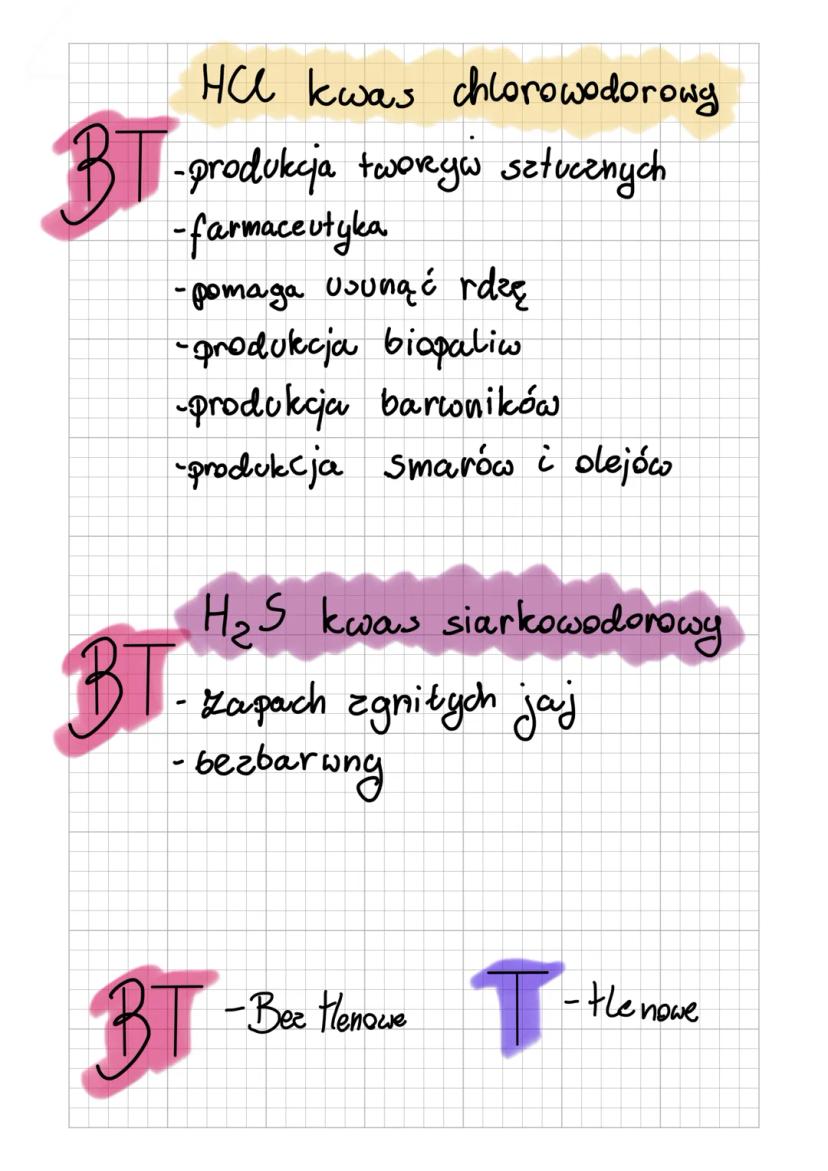 HCl kwas chlorowodorowy
BT
-produkcja tworzyw sztucznych
-farmaceutyka
-pomaga usunąć rdzę
-produkcja biopaliw
-produkcja barwników
-produkcja smarów i olejów
H₂S kwas siarkowodorowy
BT
- zapach zgniłych jaj
- bezbarwny
BT -Bez tlenowe T -tlenowe